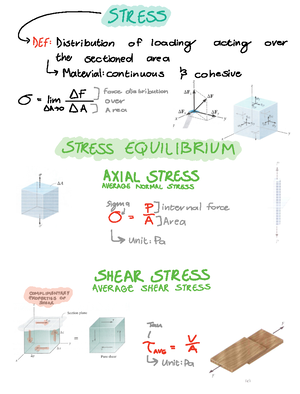 STRESS
DEF: Distribution of loading acting over
the sectioned area
Material: continuous & cohesive
σ = lim ΔF ] force distribution
over
ΔA→0 ΔA ] Area
STRESS EQUILIBRIUM
AXIAL STRESS
AVERAGE NORMAL STRESS
sigma
σ = P ] internal force
A ] Area
Unit: Pa
SHEAR STRESS
AVERAGE SHEAR STRESS
COMPLEMENTARY
PROPERTIES OF
SHEAR
Section plane
τAVG = V
A
Unit: Pa
Pure shear